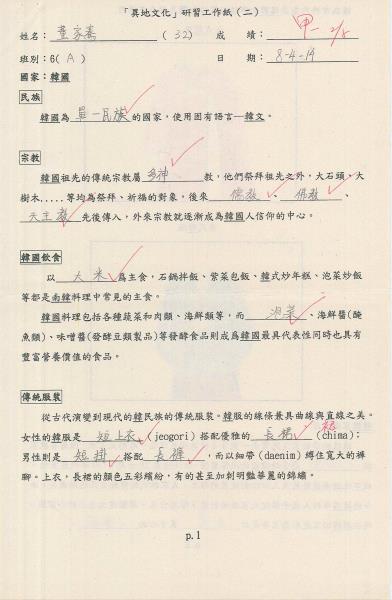 「異地文化」研習工作紙(二)
姓名: 董家 (32) 成 績: 甲-
班別:6(A) 日 期: 8-4-14
國家:韓國
民族
韓國為單一民族的國家,使用固有語言─韓文。
宗教
韓國祖先的傳統宗教屬多神教,他們祭拜祖先之外,大石頭、大
樹木.....等均為祭拜、祈福的對象,後來儒教、佛教、
天主教先後傳入,外來宗教就逐漸成為韓國人信仰的中心。
韓國飲食
以大米爲主食,石鍋拌飯、紫菜包飯、韓式炒年糕、泡菜炒飯
等都是南韓料理中常見的主食。
韓國料理包括各種蔬菜和肉類、海鮮類等,而泡菜、海鮮醬(醃
魚類)、味噌醬(發酵豆類製品)等發酵食品則成爲韓國最具代表性同時也具有
豐富營養價值的食品。
傳統服裝
從古代演變到現代的韓民族的傳統服裝。韓服的線條兼具曲線與直線之美。
女性的韓服是短上衣(jeogori)搭配優雅的長裙裙(chima);
男性則是短掛搭配長褲,而以細帶(daenim)縛住寬大的褲
腳。上衣,長裙的顏色五彩繽紛,有的甚至加刺明豔華麗的錦繡。
p.1